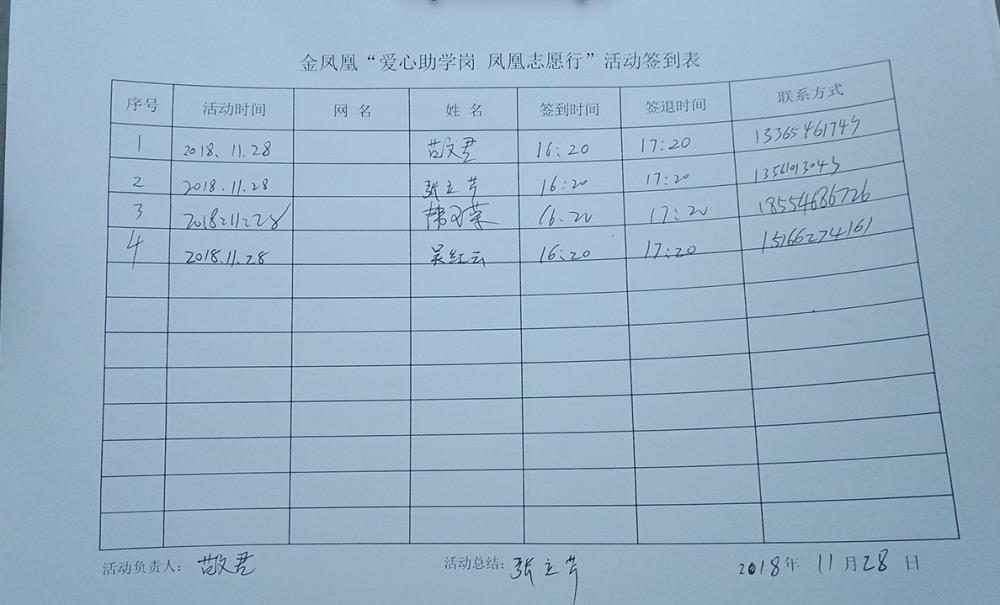 金凤凰“爱心助学岗 凤凰志愿行”活动签到表
序号 活动时间 网名 姓名 签到时间 签退时间 联系方式
1 2018、11.28 16:20 17:20 13365461749
2 2018.11.28 张立芹 16:20 17:20
3 2018.11.28 16:20 17:20 18554686726
4 2018.11.28 吴红云 16:20 17:20 15266274161
活动负责人: 活动总结: 张立芹 2018年 11月28日